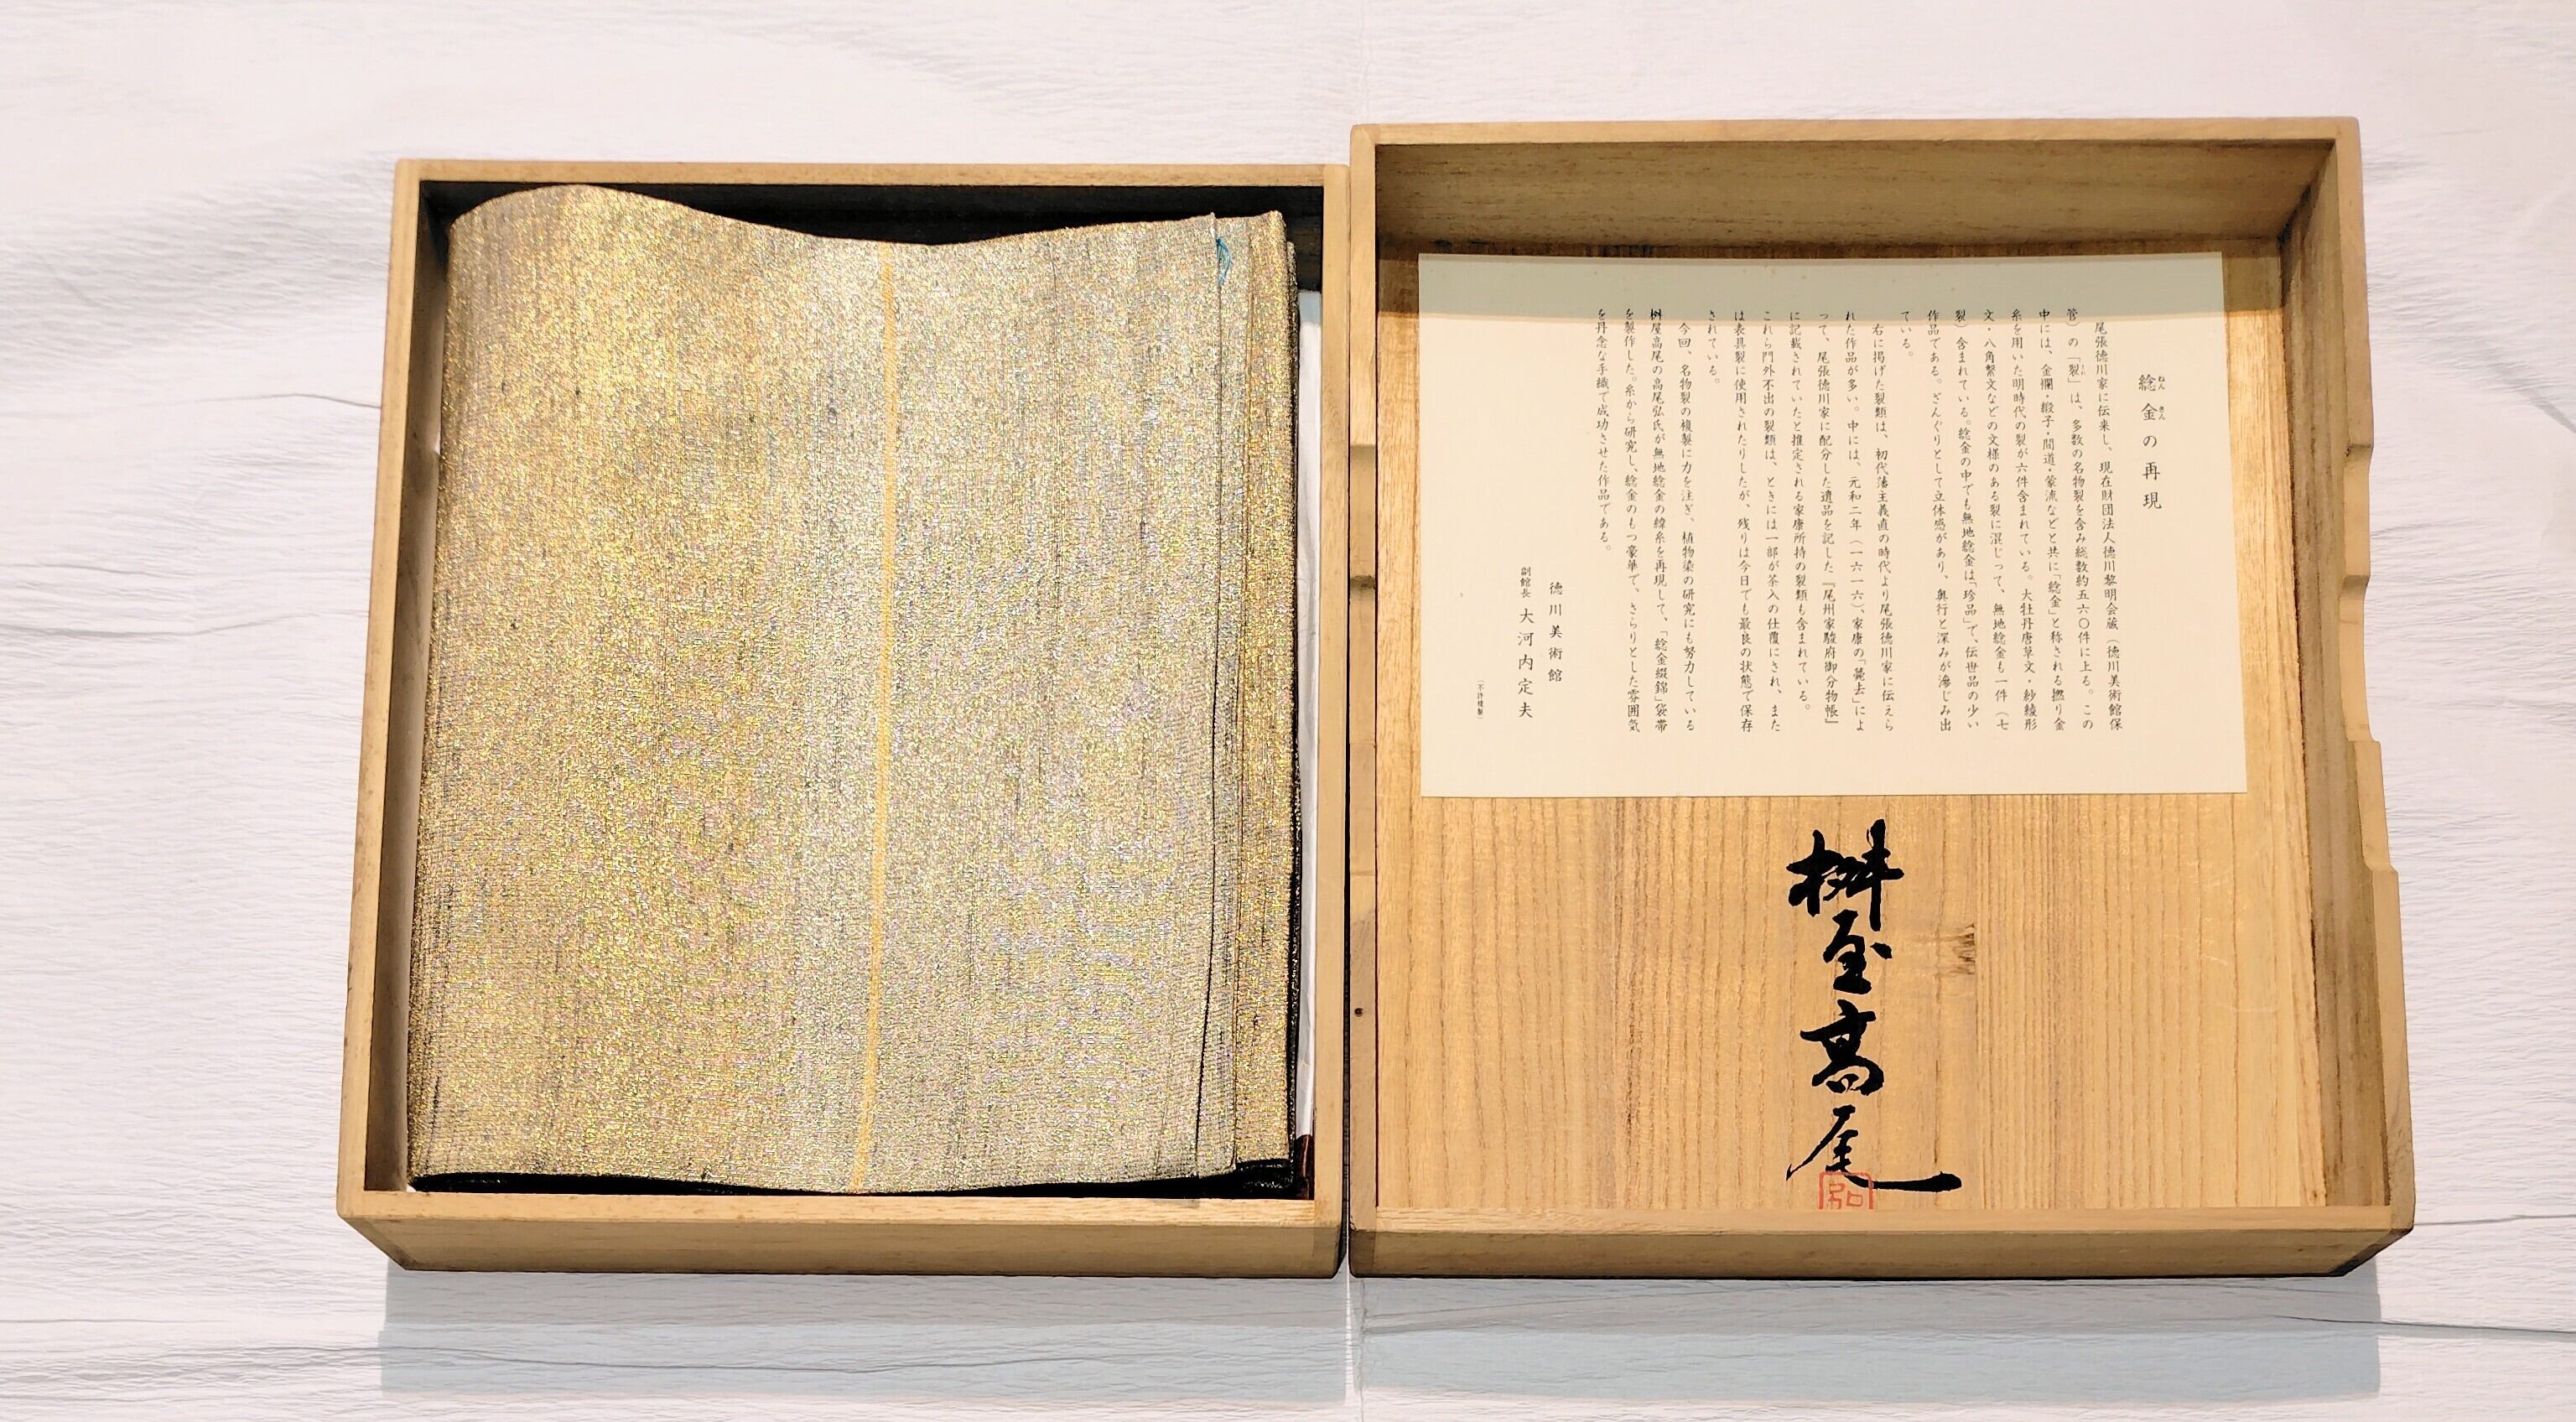 稔金の再現
ねんきん
尾張徳川家に伝来し、現在財団法人徳川黎明会蔵（徳川美術館保
管）の「裂」は、多数の名物裂を含み総数約五六〇件に上る。この
中には、金襴・緞子・間道・蒙流などと共に「稔金」と称される撚り金
糸を用いた明時代の裂が六件含まれている。大牡丹唐草文・紗綾形
文・八角繋文などの文様のある裂に混じって、無地稔金も一件（七
裂）含まれている。稔金の中でも無地稔金は「珍品」で、伝世品の少い
作品である。ざんぐりとして立体感があり、奥行と深みが滲じみ出
ている。
右に掲げた裂類は、初代藩主義直の時代より尾張徳川家に伝えら
れた作品が多い。中には、元和二年（一六一六）、家康の「薨去」によ
って、尾張徳川家に配分した遺品を記した『尾州家駿府御分物帳』
に記載されていたと推定される家康所持の裂類も含まれている。
これら門外不出の裂類は、ときには一部が茶入の仕覆にされ、また
は表具裂に使用されたりしたが、残りは今日でも最良の状態で保存
されている。
今回、名物裂の複製に力を注ぎ、植物染の研究にも努力している
桝屋高尾の高尾弘氏が無地稔金の緯糸を再現して、「稔金綴錦」袋帯
を製作した。糸から研究し、稔金のもつ豪華で、さらりとした雰囲気
を丹念な手織で成功させた作品である。
徳川美術館
副館長 大河内定夫
（不許複製）
桝屋高尾
弘